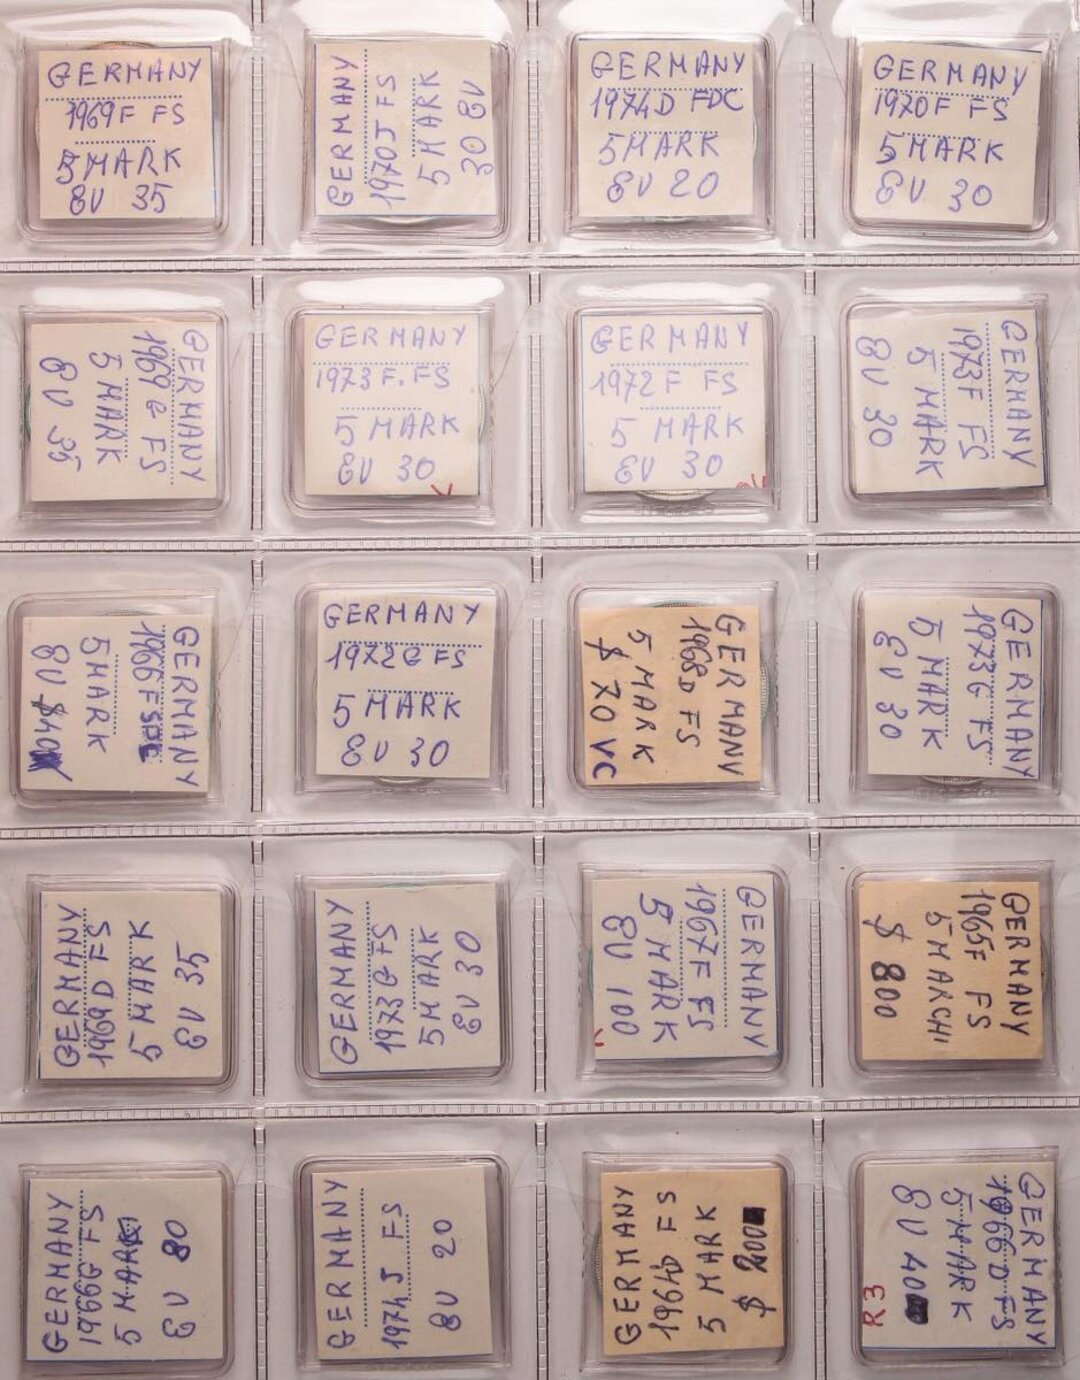 GERMANY
1969F FS
5 MARK
EU 35
GERMANY
1970J FS
5 MARK
30 EU
GERMANY
1974D FDC
5 MARK
EU 20
GERMANY
1970F FS
5 MARK
EU 30
GERMANY
1969G FS
5 MARK
EU 35
GERMANY
1973F. FS
5 MARK
EU 30
GERMANY
1972F FS
5 MARK
EU 30
GERMANY
1973F FS
5 MARK
EU 30
GERMANY
1966F
5 MARK
EU
GERMANY
1972G FS
5 MARK
EU 30
GERMANY
1968D FS
5 MARK
$ 70 VC
GERMANY
1973G FS
5 MARK
EU 30
GERMANY
1969D FS
5 MARK
EU 35
GERMANY
1973G FS
5 MARK
EU 30
GERMANY
1967F FS
5 MARK
EU 100
GERMANY
1965F FS
5 MARCHI
$ 800
GERMANY
1966G FS
5 MARK
EU 80
GERMANY
1974J FS
EU 20
GERMANY
1964D FS
5 MARK
$ 200
GERMANY
1966D FS
5 MARK
EU 40
R3